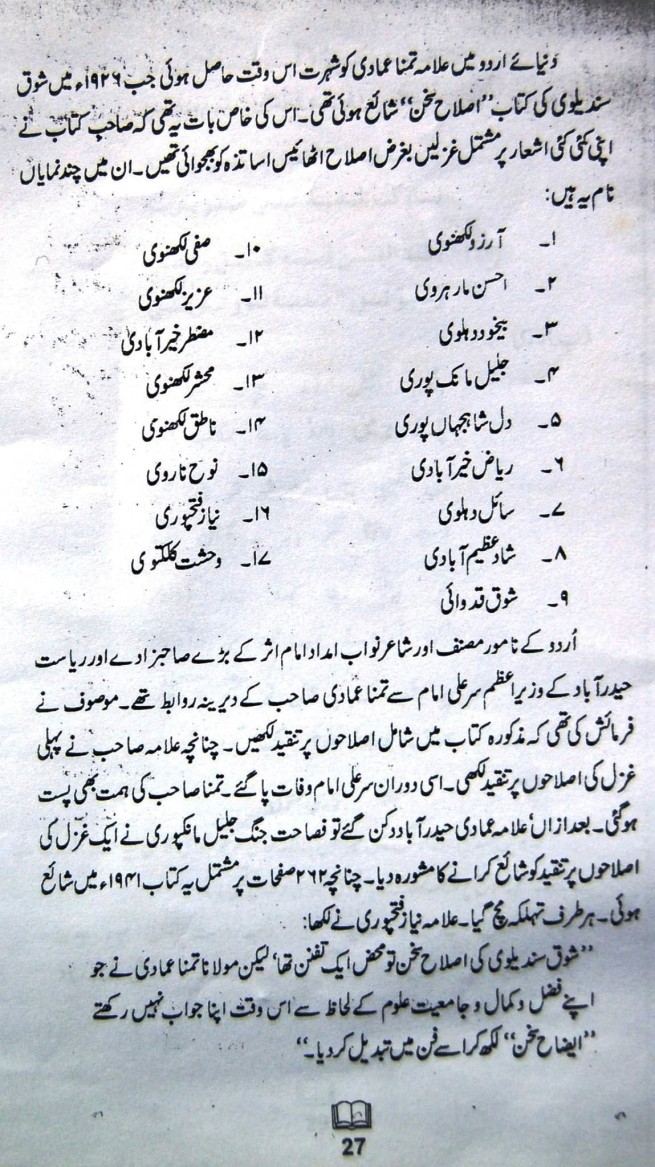 دنیائے اردو میں علامہ تمنا عمادی کو شہرت اس وقت حاصل ہوئی جب ۱۹۲۶ء میں شوق
سندیلوی کی کتاب ’’اصلاح سخن‘‘ شائع ہوئی تھی۔ اس کی خاص بات یہ تھی کہ صاحب کتاب نے
اپنی کئی کئی اشعار پر مشتمل غزلیں بغرض اصلاح اٹھائیس اساتذہ کو بھجوائی تھیں۔ ان میں چند نمایاں
نام یہ ہیں:
۱۔ آرزو لکھنوی
۲۔ احسن مارہروی
۳۔ بیخود دہلوی
۴۔ جلیل مانک پوری
۵۔ دل شاہجہاں پوری
۶۔ ریاض خیر آبادی
۷۔ سائل دہلوی
۸۔ شاد عظیم آبادی
۹۔ شوق قدوائی
۱۰۔ صفی لکھنوی
۱۱۔ عزیز لکھنوی
۱۲۔ مضطر خیر آبادی
۱۳۔ محشر لکھنوی
۱۴۔ ناطق لکھنوی
۱۵۔ نوح ناروی
۱۶۔ نیاز فتحپوری
۱۷۔ وحشت کلکتوی
اُردو کے نامور مصنف اور شاعر نواب امداد امام اثر کے بڑے صاحبزادے اور ریاست
حیدر آباد کے وزیراعظم سر علی امام سے تمنا عمادی صاحب کے دیرینہ روابط تھے۔ موصوف نے
فرمائش کی تھی کہ مذکورہ کتاب میں شامل اصلاحوں پر تنقید لکھیں۔ چنانچہ علامہ صاحب نے پہلی
غزل کی اصلاحوں پر تنقید لکھی۔ اسی دوران سر علی امام وفات پا گئے۔ تمنا صاحب کی ہمت بھی پست
ہو گئی۔ بعد ازاں‘ علامہ عمادی حیدر آباد دکن گئے تو فصاحت جنگ جلیل مانکپوری نے ایک غزل کی
اصلاحوں پر تنقید کو شائع کرانے کا مشورہ دیا۔ چنانچہ ۲۶۲ صفحات پر مشتمل یہ کتاب ۱۹۴۱ء میں شائع
ہوئی۔ ہر طرف تہلکہ مچ گیا۔ علامہ نیاز فتحپوری نے لکھا:
’’شوق سندیلوی کی اصلاح سخن تو محض ایک تفنن تھا‘ لیکن مولانا تمنا عمادی نے جو
اپنے فضل و کمال و جامعیت علوم کے لحاظ سے اس وقت اپنا جواب نہیں رکھتے
’’ایضاح سخن‘‘ لکھ کر اسے فن میں تبدیل کر دیا۔‘‘
27